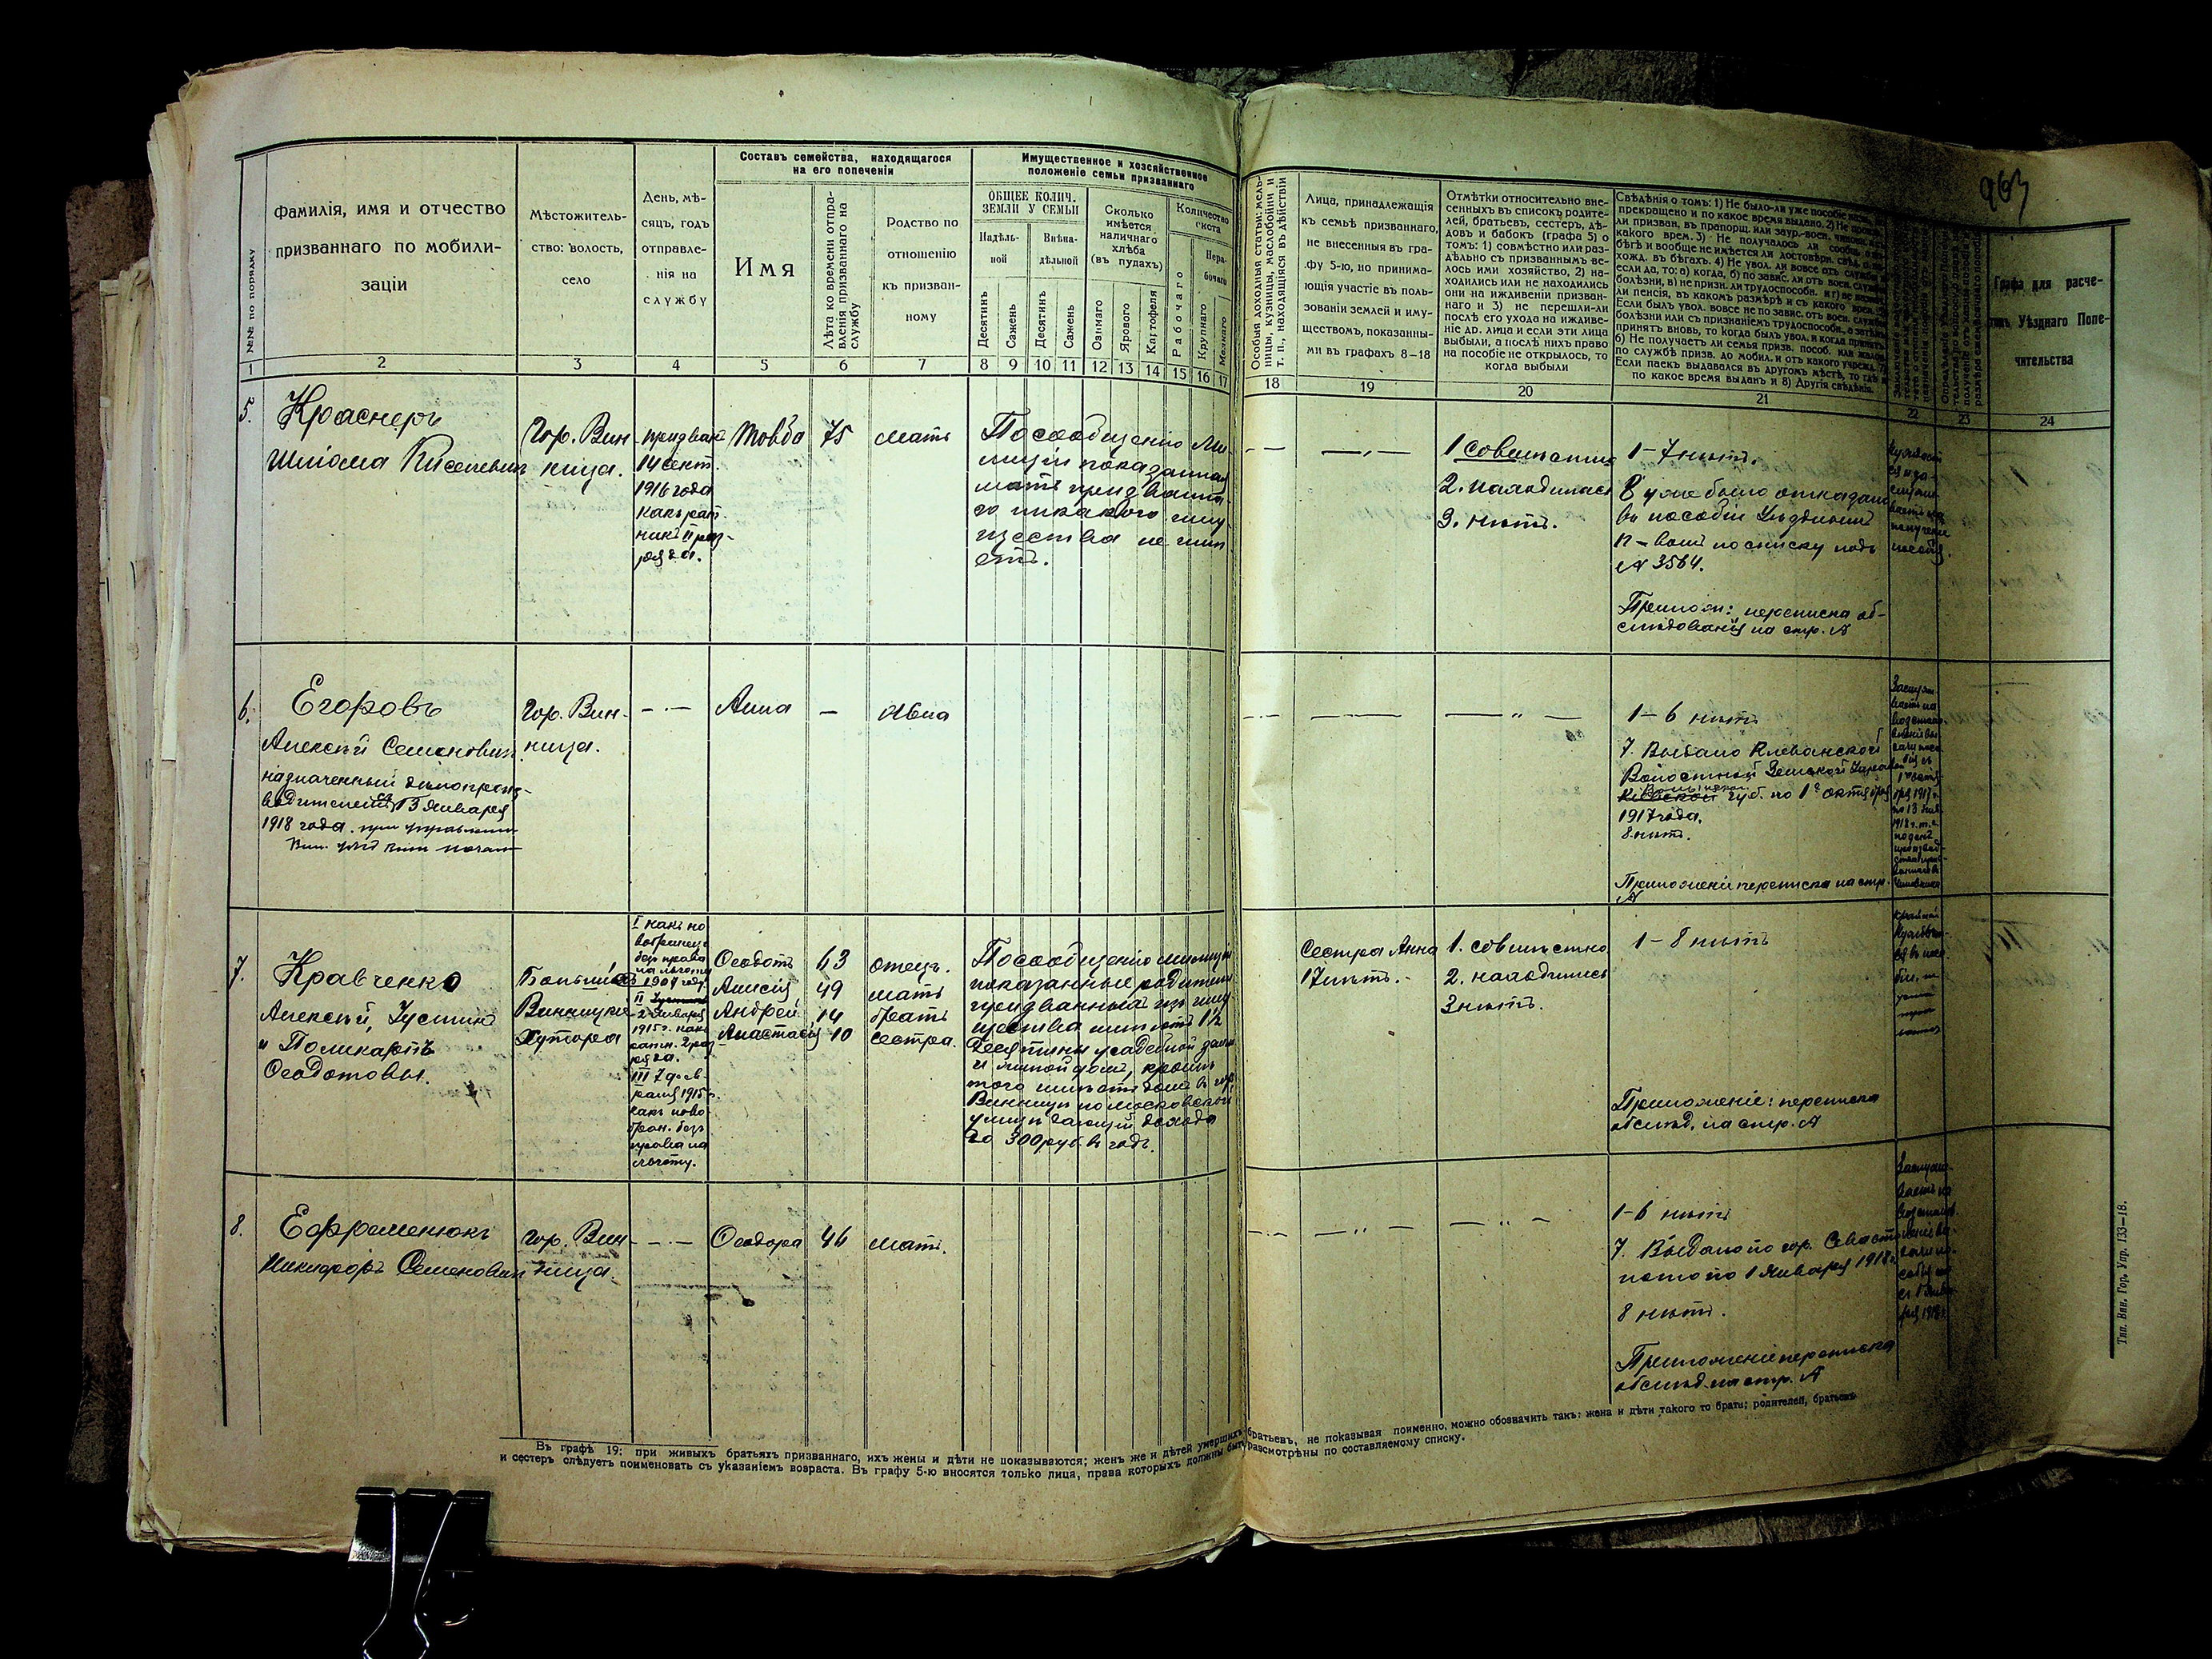 963
№№ по порядку
Фамилія, имя и отчество
призваннаго по мобили-
заціи
Мѣстожитель-
ство: волость,
село
День, мѣ-
сяцъ, годъ
отправле-
нія на
службу
Составъ семейства, находящагося
на его попеченіи
Имя
Лѣта ко времени отпра-
вленія призваннаго на
службу
Родство по
отношенію
къ призван-
ному
Имущественное и хозяйственное
положеніе семьи призваннаго
ОБЩЕЕ КОЛИЧ.
ЗЕМЛИ У СЕМЬИ
Надѣль-
ной
Внѣна-
дѣльной
Десятинъ
Сажень
Десятинъ
Сажень
Сколько
имѣется
наличнаго
хлѣба
(въ пудахъ)
Озимаго
Ярового
Картофеля
Количество
скота
Рабочаго
Нера-
бочаго
Крупнаго
Мелкаго
Особыя доходныя статьи: мель-
ницы, кузницы, маслобойни и
т. п., находящіяся въ дѣйствіи
Лица, принадлежащія
къ семьѣ призваннаго,
не внесенныя въ гра-
фу 5-ю, но принима-
ющія участіе въ поль-
зованіи землей и иму-
ществомъ, показанны-
ми въ графахъ 8—18
Отмѣтки относительно вне-
сенныхъ въ списокъ родите-
лей, братьевъ, сестеръ, дѣ-
довъ и бабокъ (графа 5) о
томъ: 1) совмѣстно или раз-
дѣльно съ призваннымъ ве-
лось ими хозяйство, 2) на-
ходились или не находились
они на иждивеніи призван-
наго и 3) не перешли-ли
послѣ его ухода на иждиве-
ніе др. лица и если эти лица
выбыли, а послѣ нихъ право
на пособіе не открылось, то
когда выбыли
Свѣдѣнія о томъ: 1) Не было-ли уже пособіе
прекращено и по какое время выдано. 2)
ли призван. въ прапорщ. или заур.-воен.
какого врем. 3) Не получалось ли сообщ.
бѣгѣ и вообще не имѣется ли достовѣрн. свѣд.
хожд. въ бѣгахъ. 4) Не увол. ли вовсе отъ службы
если да, то: а) когда, б) по завис. ли отъ воен. служ.
болѣзни, в) не призн. ли трудоспособн. и г)
ли пенсія, въ какомъ размѣрѣ и съ какого врем.
Если былъ увол. вовсе не по завис. отъ воен. службы
болѣзни или съ признаніемъ трудоспособн., а затѣмъ
принятъ вновь, то когда былъ увол. и когда принятъ
6) Не получаетъ ли семья призв. пособ. или жалов.
по службѣ призв. до мобил. и отъ какого учрежд. 7)
Если паекъ выдавался въ другомъ мѣстѣ, то гдѣ и
по какое время выданъ и 8) Другія свѣдѣнія.
Графа для расче-
товъ Уѣзднаго Попе-
чительства
1 2 3 4 5 6 7 8 9 10 11 12 13 14 15 16 17 18 19 20 21 22 23 24
5.
Краснеръ
Шліома Киселевич
Гор. Вин-
ница.
призван
14 сент.
1916 года
какъ рат-
никъ II раз-
ряда.
Товба 75 мать
По сообщенію Ми-
лиціи показанная
мать призванна-
го никакого иму
щества не имѣ
етъ.
1 совместно
2. находилась
3. нѣтъ.
1—7 нѣтъ.
8 уже было отказано
въ пособіи Уѣзднымъ
П-вомъ по списку подъ
№ 3564.
Прилож: переписка об-
слѣдованія на стр. №
6.
Егоровъ
Алексѣй Семеновичъ
назначенный дѣлопроиз-
водителемъ съ 13 Января
1918 года.
Гор. Вин-
ница.
Анна — жена
1—6 нѣтъ
7. Выдано Клеванской
Волостной Земской Управой
Волынской
Киевской губ. по 1е октября
1917 года.
8. нѣтъ.
Приложеніе переписка на стр.
№
7.
Кравченко
Алексѣй, Устинъ
и Поликарпъ
Ѳеодотовы.
Большіе
Винницкіе
Хутора
I какъ но
вобранецъ
безъ права
на льготу
1909 году.
II
2 Января
1915 г. какъ
ратн. 2 раз
ряда.
III 7 фев-
раля 1915 г.
какъ ново-
бран. безъ
права на
льготу.
Ѳеодотъ 63 отецъ.
Анисія 49 мать
Андрей 14 братъ
Анастасія 10 сестра.
По сообщенію милиціи
показанные родители
призванныхъ изъ иму-
щества имѣютъ 1½
десятины усадебной земли
и жилой домъ, кромѣ
того имѣютъ домъ въ гор.
Винницѣ по Московской
улицѣ дающій дохода
до 300 руб. въ годъ.
Сестра Анна
17 лѣтъ.
1. совместно
2. находились
3 нѣтъ.
1—8 нѣтъ
Приложеніе: переписка
обслѣд. на стр. №
8.
Ефременюкъ
Никифоръ Семенович
Гор. Вин-
ница.
Ѳеодора 46 мать.
1—6 нѣтъ
7. Выдано по гор. Севасто
полю по 1 Января 1918 г.
8 нѣтъ.
Приложеніе переписка
обслѣд. на стр. №
Въ графѣ 19: при живыхъ братьяхъ призваннаго, ихъ жены и дѣти не показываются; женъ же и дѣтей умершихъ братьевъ, не показывая поименно, можно обозначить такъ: жена и дѣти такого то брата; родителей, братьевъ
и сестеръ слѣдуетъ поименовать съ указаніемъ возраста. Въ графу 5-ю вносятся только лица, права которыхъ должны быть разсмотрѣны по составляемому списку.
Тип. Вин. Гор. Упр. 133—18.